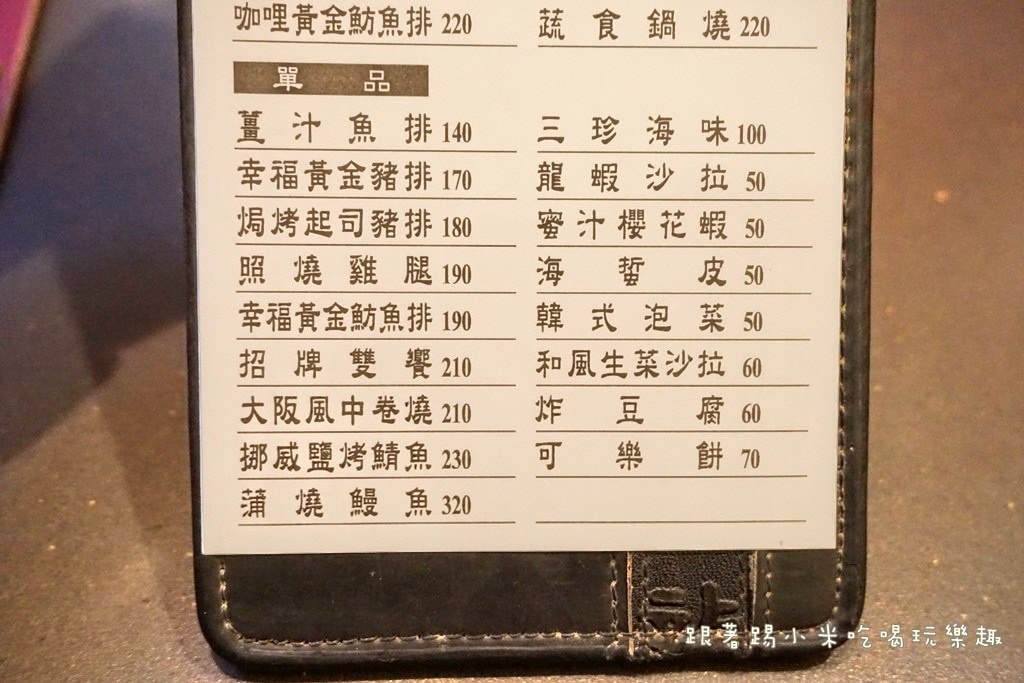 咖哩黃金魴魚排 220
蔬食鍋燒 220
單品
薑汁魚排 140
幸福黃金豬排 170
焗烤起司豬排 180
照燒雞腿 190
幸福黃金魴魚排 190
招牌雙饗 210
大阪風中卷燒 210
挪威鹽烤鯖魚 230
蒲燒鰻魚 320
三珍海味 100
龍蝦沙拉 50
蜜汁櫻花蝦 50
海蜇皮 50
韓式泡菜 50
和風生菜沙拉 60
炸豆腐 60
可樂餅 70
跟著踢小米吃喝玩樂趣